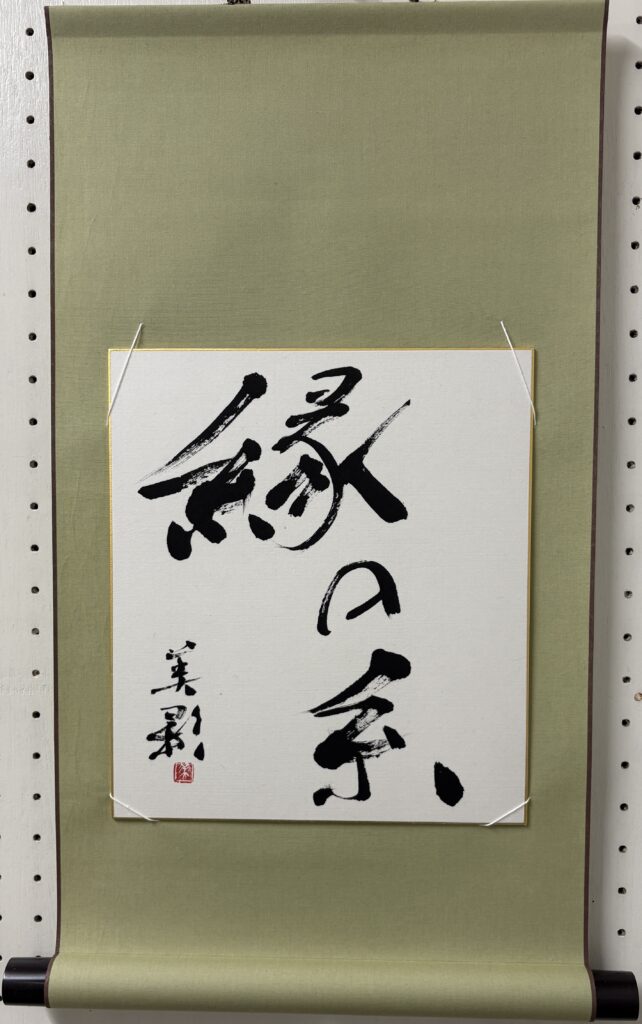 縁の糸
美影